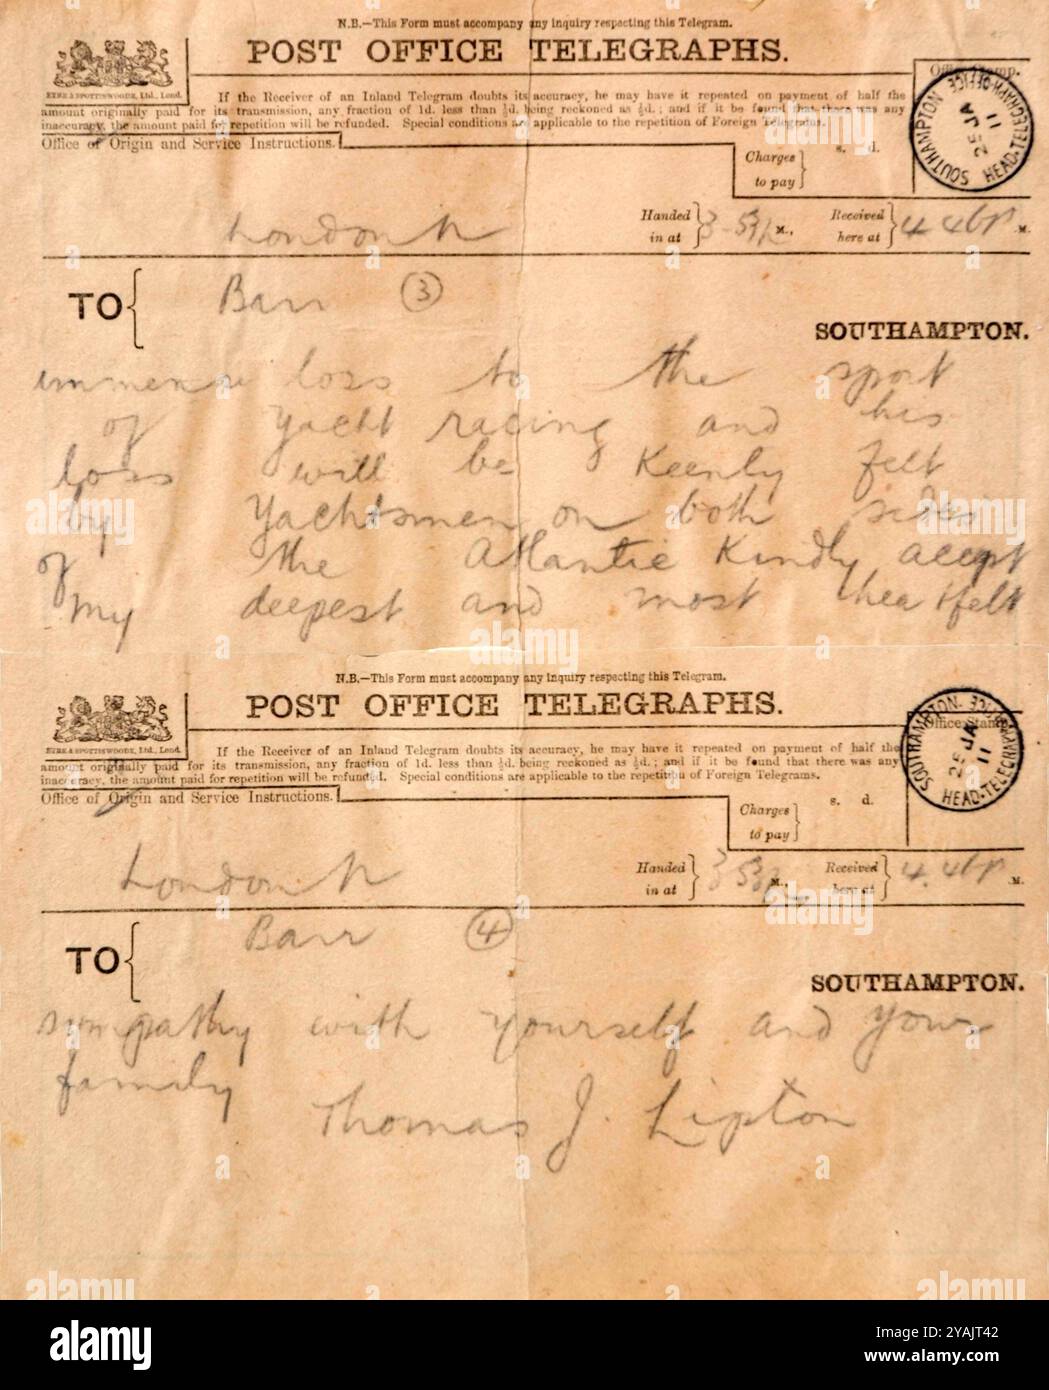 N.B.—This Form must accompany any inquiry respecting this Telegram.
POST OFFICE TELEGRAPHS.
EYRE & SPOTTISWOODE, Ltd., Lond.
If the Receiver of an Inland Telegram doubts its accuracy, he may have it repeated on payment of half the
amount originally paid for its transmission, any fraction of 1d. less than ½d. being reckoned as ½d.; and if it be found that there was any
inaccuracy, the amount paid for repetition will be refunded. Special conditions are applicable to the repetition of Foreign Telegrams.
Office of Origin and Service Instructions.
Office Stamp.
SOUTHAMPTON HEAD-TELEGRAPH-OFFICE
25 JA
11
Charges to pay
s. d.
London
Handed in at
M.,
Received here at
M.
TO
Barr 3
SOUTHAMPTON.
immense loss to the sport
of Yacht racing and his
loss will be Keenly felt
by Yachtsmen on both sides
of the Atlantic Kindly accept
my deepest and most heartfelt
N.B.—This Form must accompany any inquiry respecting this Telegram.
POST OFFICE TELEGRAPHS.
EYRE & SPOTTISWOODE, Ltd., Lond.
If the Receiver of an Inland Telegram doubts its accuracy, he may have it repeated on payment of half the
amount originally paid for its transmission, any fraction of 1d. less than ½d. being reckoned as ½d.; and if it be found that there was any
inaccuracy, the amount paid for repetition will be refunded. Special conditions are applicable to the repetition of Foreign Telegrams.
Office of Origin and Service Instructions.
Office Stamp.
SOUTHAMPTON HEAD-TELEGRAPH-OFFICE
25 JA
11
Charges to pay
s. d.
London
Handed in at
M.,
Received here at
M.
TO
Barr 4
SOUTHAMPTON.
sympathy with yourself and your
family
Thomas J. Lipton
alamy
Image ID: 2YAJT42
www.alamy.com